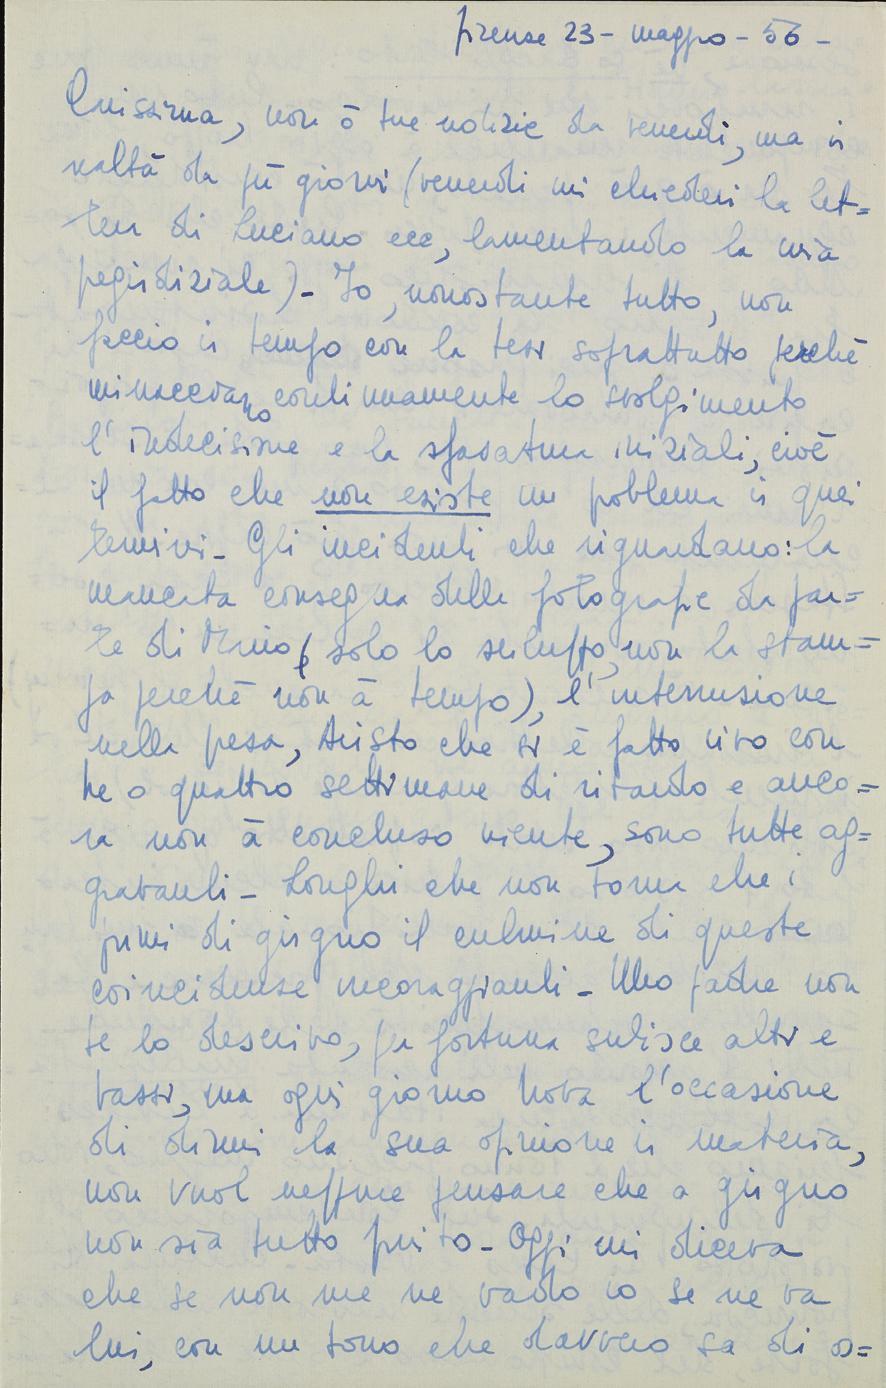 Firenze 23 - maggio - 56 -
Carissima, non ò tue notizie da venerdì, ma in
realtà da più giorni (venerdì mi chiedevi la let=
tera di Luciano ecc, lamentando la mia
pregiudiziale) - Io, nonostante tutto, non
faccio in tempo con la tesi soprattutto perché
minacciano continuamente lo svolgimento
l'indecisione e la sfasatura iniziali, cioè
il fatto che non esiste un problema in quei
termini - Gli incidenti che riguardano: la
mancata consegna delle fotografie da par=
te di Mario (solo lo sviluppo, non la stam=
pa perché non à tempo), l'interruzione
nella presa, Aristo che si è fatto vivo con
tre o quattro settimane di ritardo e anco=
ra non à concluso niente, sono tutte ag=
gravanti - Longhi che non torna che i
primi di giugno il culmine di queste
coincidenze incoraggianti - Mio padre non
te lo descrivo, per fortuna subisce alti e
bassi, ma ogni giorno trova l'occasione
di dirmi la sua opinione in materia,
non vuol neppure pensare che a giugno
non sia tutto finito - Oggi mi diceva
che se non me ne vado io se ne va
lui, con un tono che davvero sa di os=